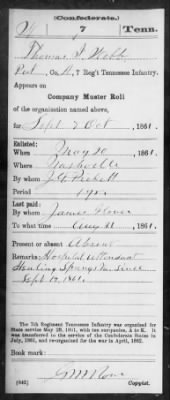 (Confederate.)
W 7 Tenn.
Thomas Webb
Pvt., Co. H, 7 Reg't Tennessee Infantry.
Appears on
Company Muster Roll
of the organization named above,
for Sept & Oct, 1861.
Enlisted:
When May 20, 1861.
Where Nashville
By whom J. G. Pickett
Period 1 yr.
Last paid:
By whom James Glover
To what time Aug 31, 1861.
Present or absent Absent
Remarks: Hospital attendant
Healing Springs Va. since
Sept 10, 1861.
The 7th Regiment Tennessee Infantry was organized for
State service May 25, 1861, with ten companies, A to K. It
was transferred to the service of the Confederate States in
July, 1861, and re-organized for the war in April, 1862.
Book mark:
(642)
Copyist.